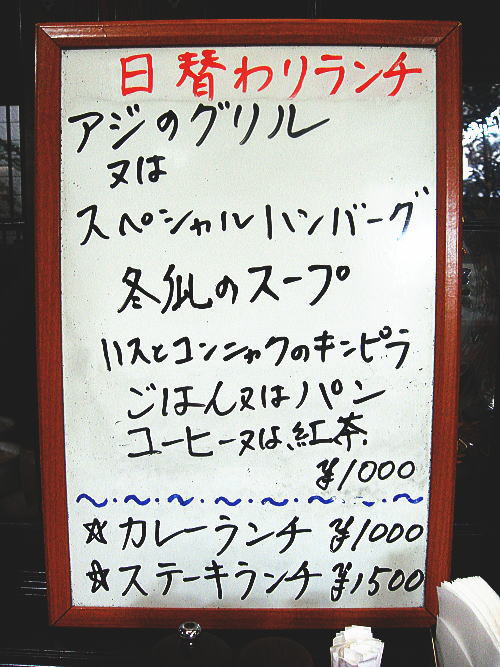 日替わりランチ
アジのグリル
又は
スペシャルハンバーグ
冬瓜のスープ
ハスとコンニャクのキンピラ
ごはん又はパン
コーヒー又は、紅茶
¥1000
～・～・～・～・～・～・～・～
☆カレーランチ ¥1000
☆ステーキランチ ¥1500